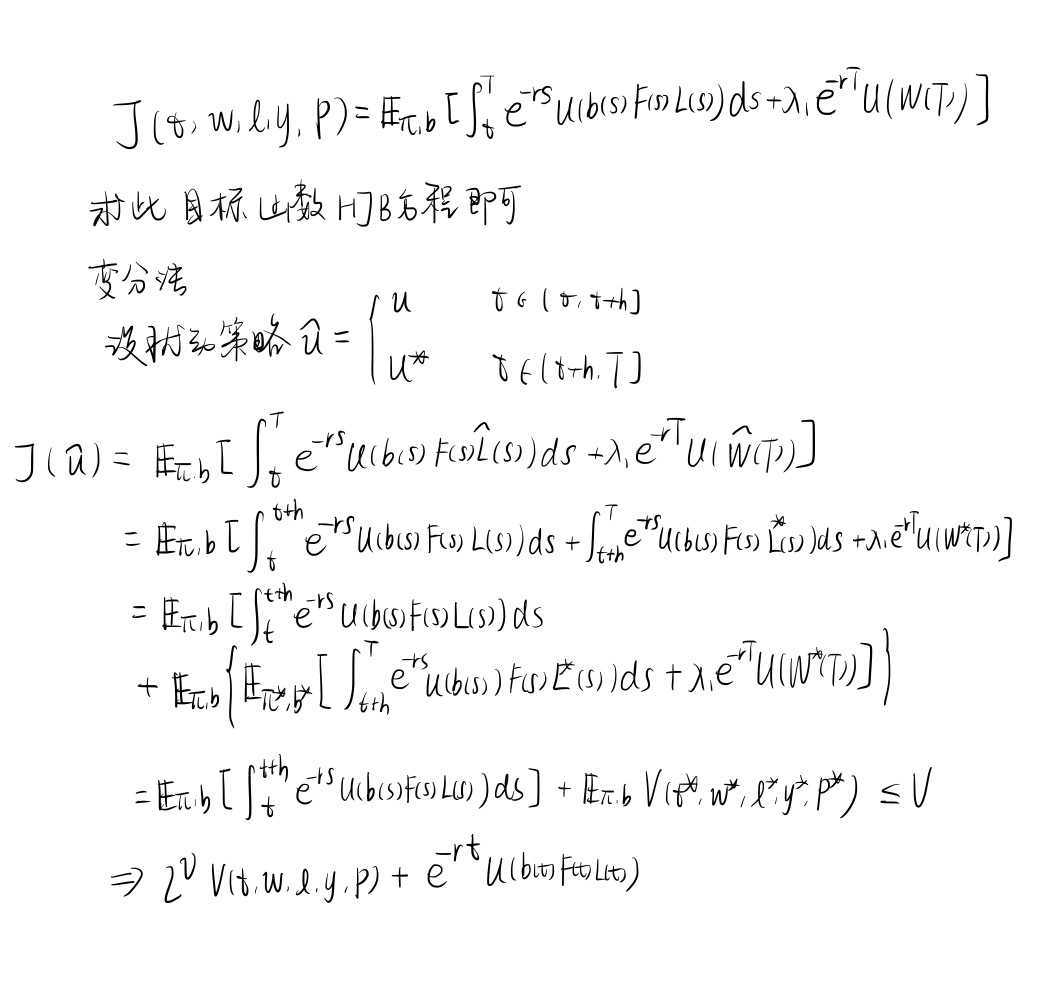 J(t, w, l, y, p) = 𝔼π,b [∫ₜᵀ e^{-rs} U(b(s) F(s) L(s)) ds + λ₁ e^{-rT} U(W(T))]
求此目标函数HJB方程即可
变分法
设扰动策略 û = { u t ∈ [t, t+h]
u* t ∈ [t+h, T]
J(û) = 𝔼π,b [∫ₜᵀ e^{-rs} U(b(s) F(s) L̂(s)) ds + λ₁ e^{-rT} U(Ŵ(T))]
= 𝔼π,b [∫ₜ^{t+h} e^{-rs} U(b(s) F(s) L(s)) ds + ∫_{t+h}^T e^{-rs} U(b(s) F(s) L*(s)) ds + λ₁ e^{-rT} U(W*(T))]
= 𝔼π,b [∫ₜ^{t+h} e^{-rs} U(b(s) F(s) L(s)) ds
+ 𝔼π,b {𝔼π*,b* [∫_{t+h}^T e^{-rs} U(b(s)) F(s) L*(s)) ds + λ₁ e^{-rT} U(W*(T))]}
= 𝔼π,b [∫ₜ^{t+h} e^{-rs} U(b(s) F(s) L(s)) ds] + 𝔼π,b V(t*, w*, l*, y*, p*) ≤ V
⇒ 𝓛^υ V(t, w, l, y, p) + e^{-rt} U(b(t) F(t) L(t))